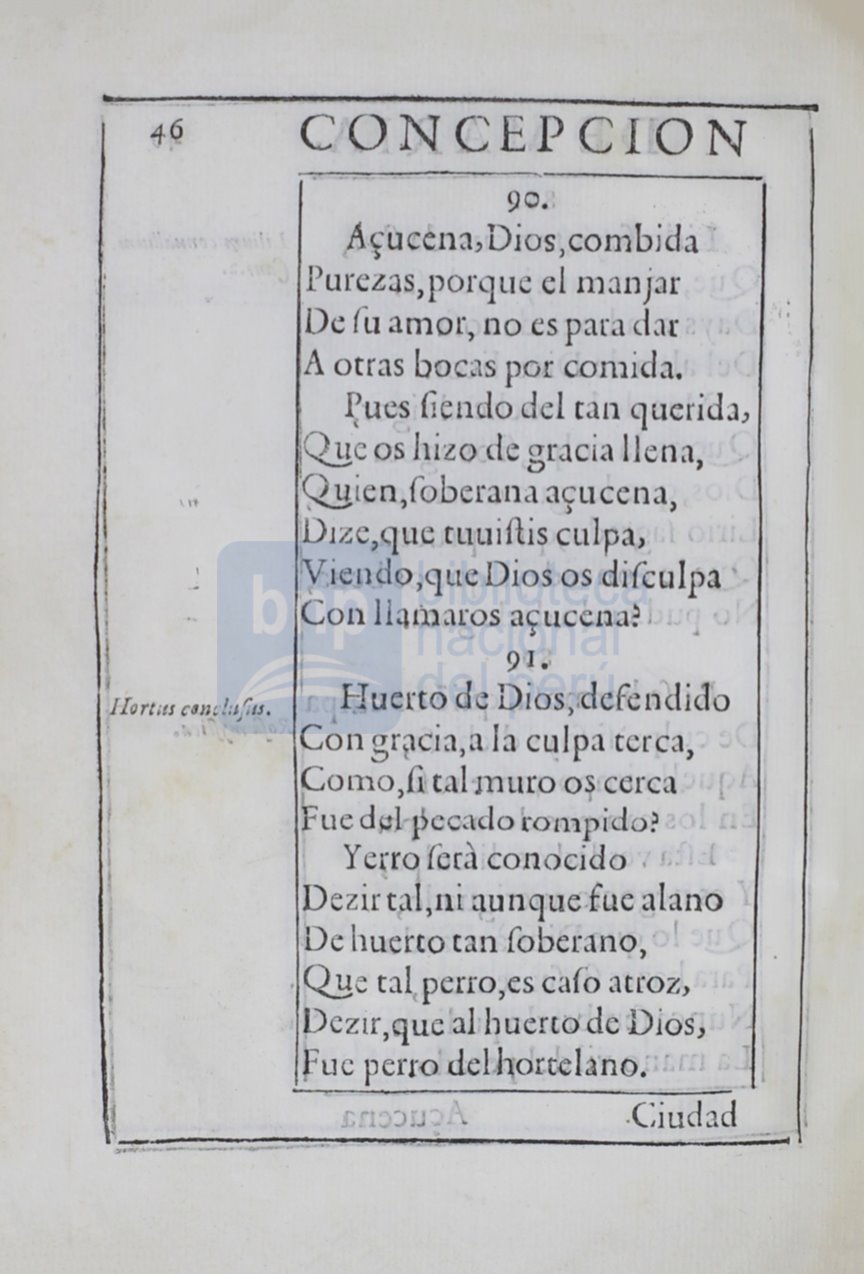 46 CONCEPCION
90.
Açucena, Dios, combida
Purezas, porque el manjar
De ſu amor, no es para dar
A otras bocas por comida.
Pues ſiendo del tan querida,
Que os hizo de gracia llena,
Quien, ſoberana açucena,
Dize, que tuuiſtis culpa,
Viendo, que Dios os diſculpa
Con llamaros açucena?
91.
Hortus concluſus.
Huerto de Dios, defendido
Con gracia, a la culpa terca,
Como, ſi tal muro os cerca
Fue del pecado rompido?
Yerro ſerà conocido
Dezir tal, ni aunque fue alano
De huerto tan ſoberano,
Que tal perro, es caſo atroz,
Dezir, que al huerto de Dios,
Fue perro del hortelano.
Ciudad
bnp biblioteca
nacional
del perú